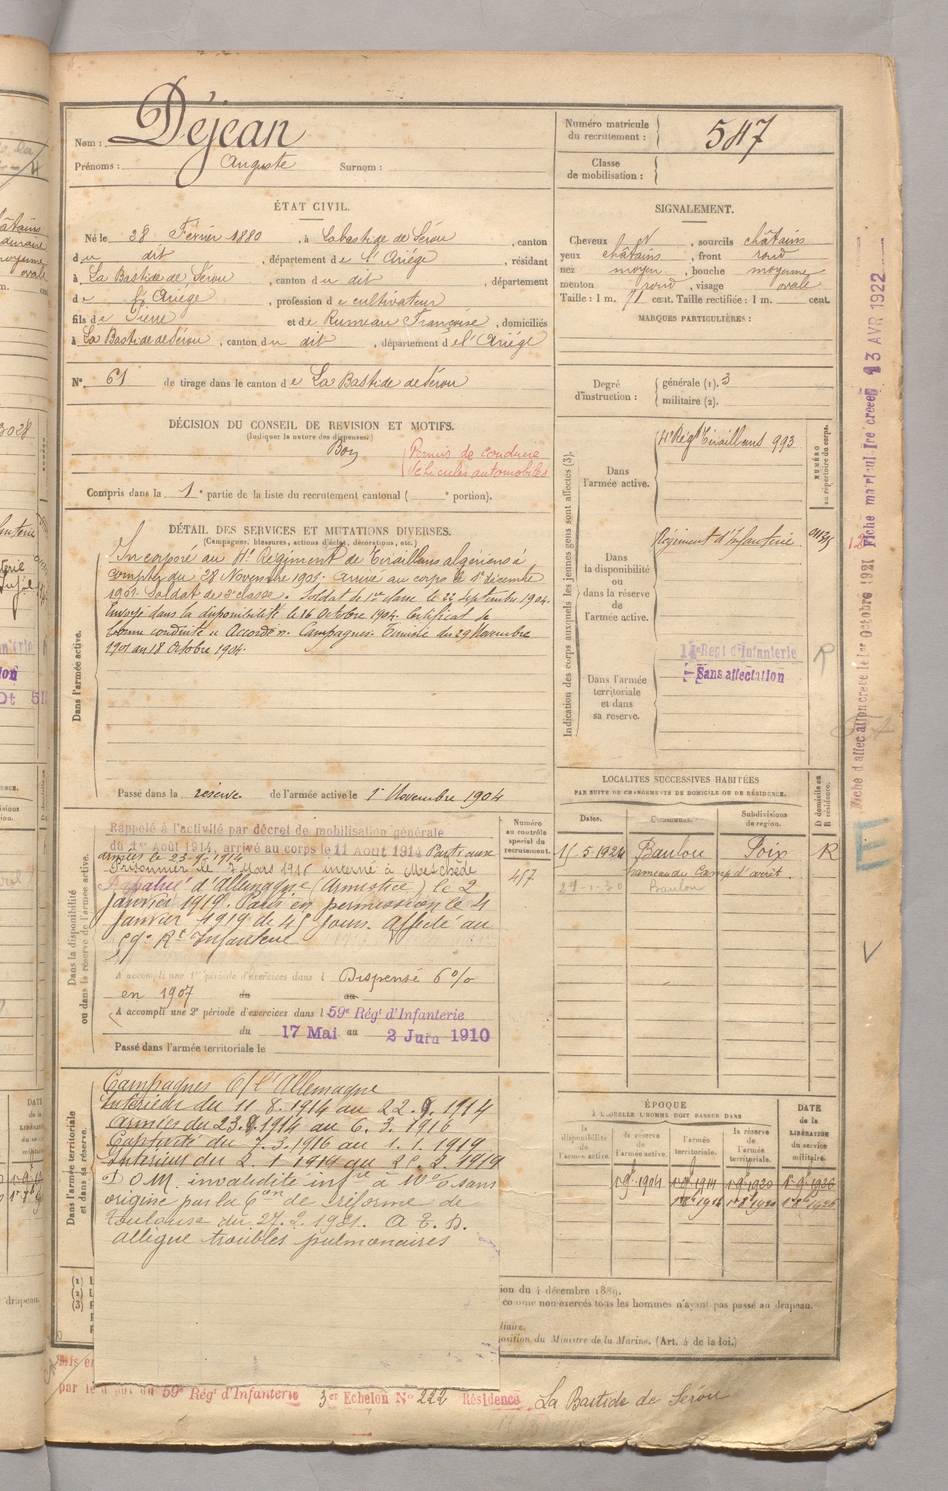 Nom : Déjean
Prénoms : Auguste Surnom :
Numéro matricule du recrutement : 547
Classe de mobilisation :
ÉTAT CIVIL.
Né le 28 Février 1880, à Labastide de Sérou, canton
du dit, département de l'Ariége, résidant
à La Bastide de Sérou, canton du dit, département
de l'Ariége, profession de cultivateur
fils de Pierre et de Rumeau Françoise, domiciliés
à La Bastide de Sérou, canton du dit, département de l'Ariége
N° 61 de tirage dans le canton de La Bastide de Sérou
SIGNALEMENT.
Cheveux , sourcils châtains
yeux châtains, front rond
nez moyen, bouche moyenne
menton rond, visage ovale
Taille : 1 m. 71 cent. Taille rectifiée : 1 m. cent.
MARQUES PARTICULIÈRES :
Degré d'instruction : générale (1). 3
militaire (2).
DÉCISION DU CONSEIL DE REVISION ET MOTIFS.
(Indiquer la nature des dispenses)
Bon
Permis de conduire
véhicules automobiles
Compris dans la 1e partie de la liste du recrutement cantonal ( e portion).
DÉTAIL DES SERVICES ET MUTATIONS DIVERSES.
(Campagnes, blessures, actions d'éclat, décorations, etc.)
Dans l'armée active.
Incorporé au 4e Régiment de Tirailleurs algériens à
compter du 28 Novembre 1901. arrivé au corps le 1er décembre
1901. Soldat de 2e classe. Soldat de 1re classe le 22 Septembre 1904.
Envoyé dans la disponibilité le 16 Octobre 1904. Certificat de
bonne conduite "Accordé". Campagnes: Tunisie du 29 Novembre
1901 au 18 Octobre 1904.
Passé dans la réserve de l'armée active le 1er Novembre 1904
Indication des corps auxquels les jeunes gens sont affectés (3).
NUMÉRO au répertoire du corps.
Dans l'armée active.
4e Régt Tirailleurs 993
Dans la disponibilité ou dans la réserve de l'armée active.
Régiment d'Infanterie
Dans l'armée territoriale et dans sa reserve.
Regt d'Infanterie R
Sans affectation
LOCALITÉS SUCCESSIVES HABITÉES
PAR SUITE DE CHANGEMENTS DE DOMICILE OU DE RÉSIDENCE.
Dates. Communes. Subdivisions de région. D domicile ou R résidence.
15-5-1924 Baulou Foix R
hameau du Camp d'arrêt.
Baulou
Dans la disponibilité ou dans la réserve de l'armée active.
Numéro au contrôle spécial du recrutement.
457
Rappelé à l'activité par décret de mobilisation générale
du 1er Août 1914, arrivé au corps le 11 Août 1914 Parti aux
armées le 23-9-1914
Prisonnier le 7 Mars 1916 interné à Meschede
Rapatrié d'Allemagne (Armistice) le 2
Janvier 1919. Parti en permission le 4
Janvier 1919 de 45 jours. Affecté au
59e Rt Infanterie
A accompli une 1re période d'exercices dans l Dispensé 6%
en 1907 du au
A accompli une 2e période d'exercices dans l 59e Régt d'Infanterie
du 17 Mai au 2 Juin 1910
Passé dans l'armée territoriale le
Dans l'armée territoriale et dans sa réserve.
Campagnes C/ l'Allemagne
Intérieur du 11.8.1914 au 22.9.1914
Armées du 23.9.1914 au 6.3.1916
Captivité du 7.3.1916 au 1.1.1919
Intérieur du 2.1.1919 au 20.2.1919
D.O.M. invalidité infre à 10% sans
origine par la 6e on de réforme de
Toulouse du 27.2.1931. A.E.D.
Allègue troubles pulmonaires
ÉPOQUE
À LAQUELLE L'HOMME DOIT PASSER DANS
DATE de la LIBÉRATION du service militaire.
la disponibilité de l'armée active. la réserve de l'armée active. l'armée territoriale. la réserve de l'armée territoriale.
1-9bre-1904 1-9bre-1914 1-9bre-1920 1-9bre-1926
ion du 4 décembre 1889.
co omme non-exercés tous les hommes n'ayant pas passé au drapeau.
liaire.
position du Ministre de la Marine. (Art. 4 de la loi.)
Mis en
par le dépôt du 59e Régt d'Infanterie 3er Echelon N° 222 Résidence La Bastide de Sérou
Fiche d'affectation créée le 1er Octobre 1921 Fiche matricule créée 13 AVR 1922